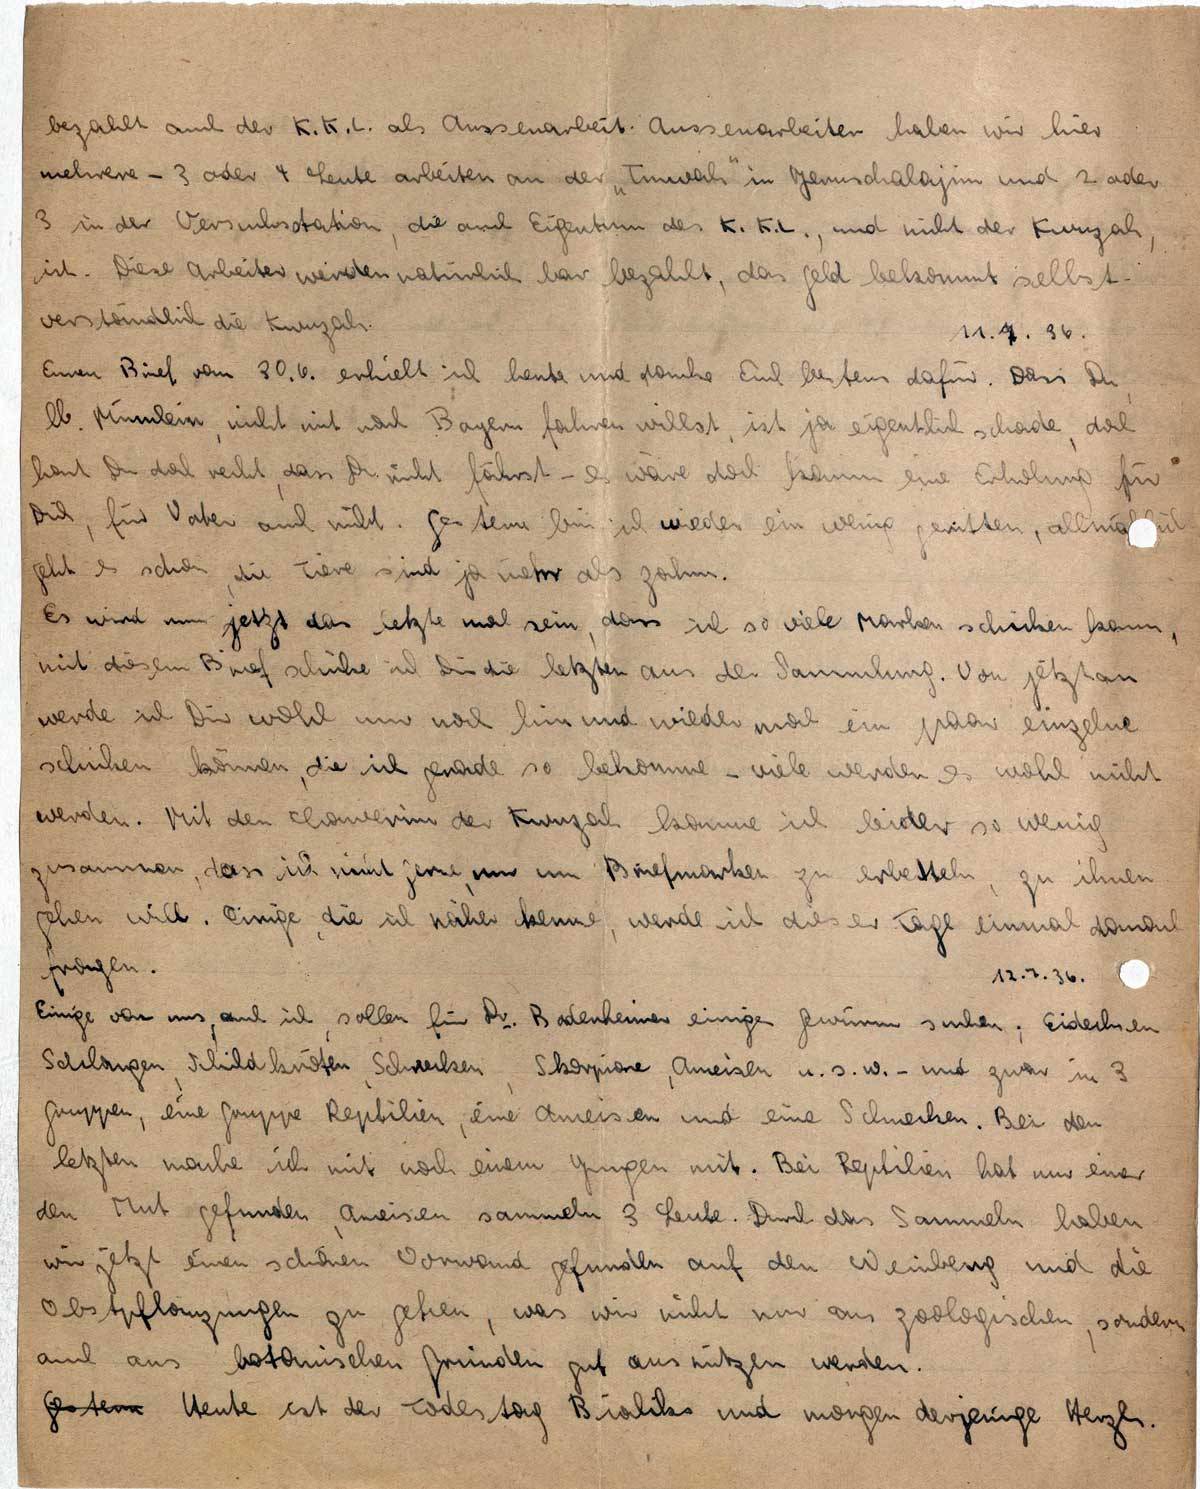 bezahlt auch der K.K.L. als Aussenarbeit. Aussenarbeiter haben wir hier
mehrere – 3 oder 4 Leute arbeiten an der „Tnuvah" in Jeruschalajim und 2 oder
3 in der Versuchsstation, die auch Eigentum des K.K.L., und nicht der Kwuzah,
ist. Diese Arbeiter werden natürlich bar bezahlt, das Geld bekommt selbst-
verständlich die Kwuzah.
11.7.36.
Euren Brief vom 30.6. erhielt ich heute und danke Euch bestens dafür. Dass Du,
lb. Mumlein, nicht mit nach Bayern fahren willst, ist ja eigentlich schade, doch
hast Du doch recht, dass Du nicht fährst – es wäre doch kaum eine Erholung für
Dich, für Vater auch nicht. Gestern bin ich wieder ein wenig geritten, allmählich
geht es schon, die Tiere sind ja mehr als zahm.
Es wird nun jetzt das letzte mal sein, dass ich so viele Marken schicken kann,
mit diesem Brief schicke ich Dir die letzten aus der Sammlung. Von jetzt an
werde ich Dir wohl nur noch hin und wieder mal ein paar einzelne
schicken können, die ich gerade so bekomme – viele werden es wohl nicht
werden. Mit den Chawerim der Kwuzah komme ich leider so wenig
zusammen, dass ich nicht gerne, nur um Briefmarken zu erbetteln, zu ihnen
gehen will. Einige, die ich näher kenne, werde ich dieser Tage einmal danach
fragen.
12.7.36.
Einige von uns, auch ich, sollen für Dr. Bodenheimer einiges Gewürm suchen; Eidechsen
Schlangen, Schildkröten, Schnecken, Skorpione, Ameisen u.s.w. – und zwar in 3
Gruppen, eine Gruppe Reptilien, eine Ameisen und eine Schnecken. Bei den
letzten mache ich mit noch einem Jungen mit. Bei Reptilien hat nur einer
den Mut gefunden, Ameisen sammeln 3 Leute. Durch das Sammeln haben
wir jetzt einen schönen Vorwand gefunden auf den Weinberg und die
Obstpflanzungen zu gehen, was wir nicht nur aus zoologischen, sondern
auch aus botanischen Gründen gut ausnützen werden.
Gestern Heute ist der Todestag Bialiks und morgen derjenige Herzls.